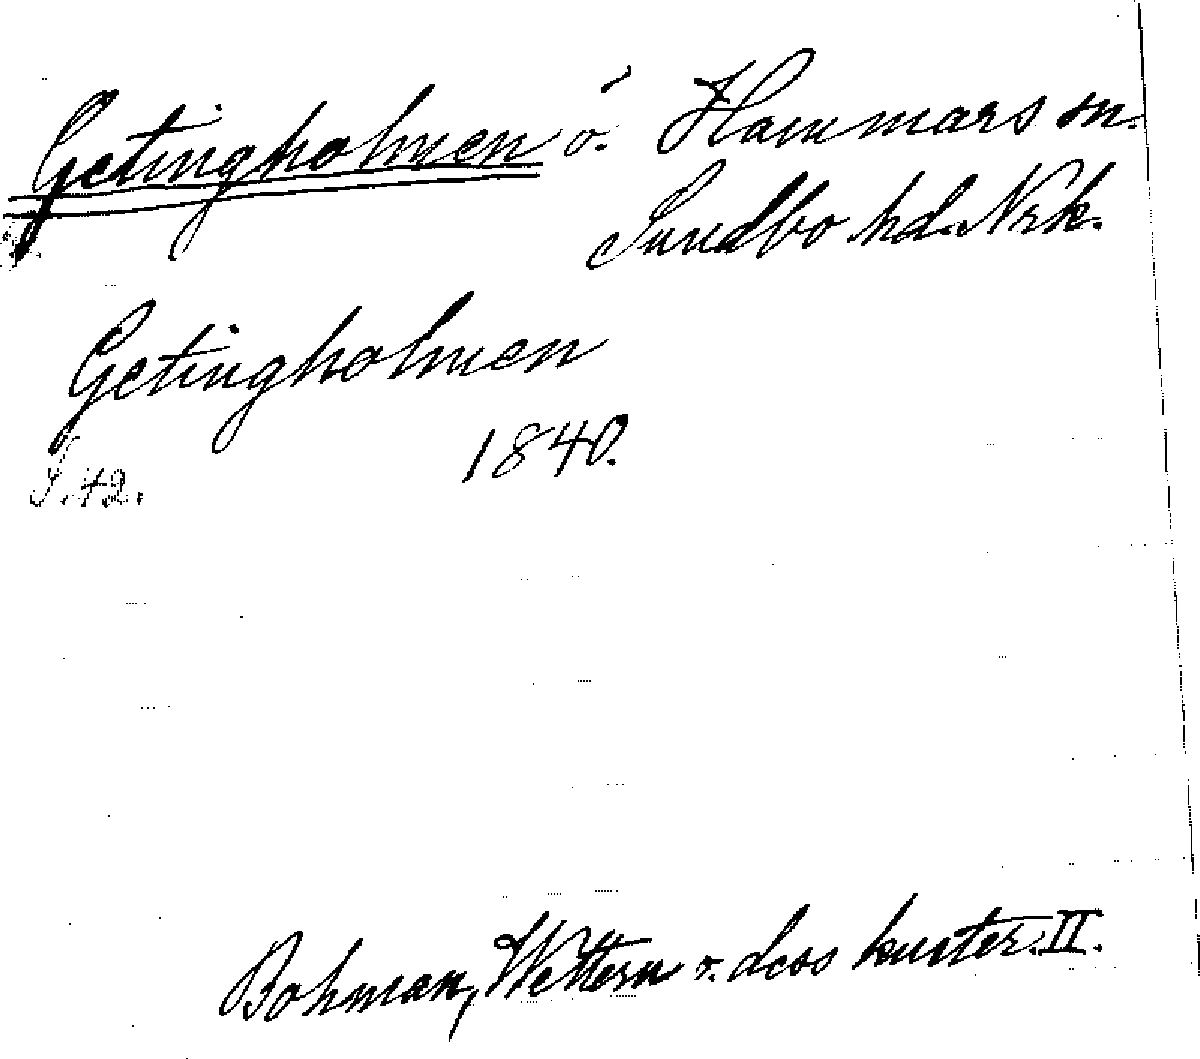 Getingholmen ö. Hammars sn.
Sundbo hd. Nrk.
Getingholmen
1840.
S. 42.
Bohman, Wettern o. dess kuster. II.